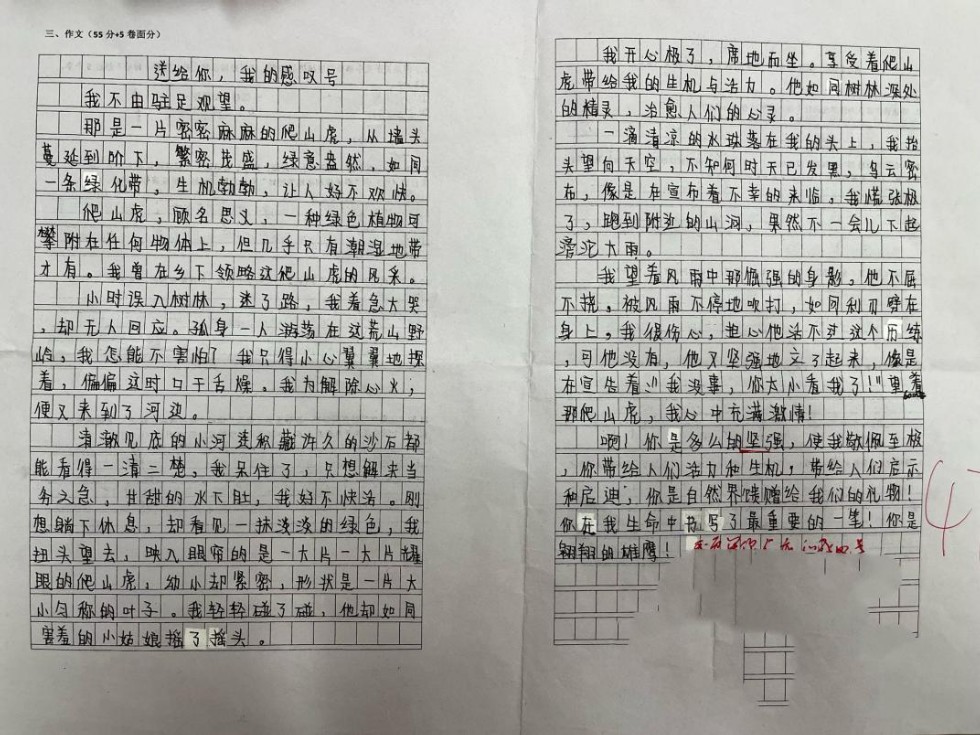 三、作文（55分+5卷面分）
送给你，我的感叹号
我不由驻足观望。
那是一片密密麻麻的爬山虎，从墙头
蔓延到阶下，繁密茂盛，绿意盎然，如同
一条绿化带，生机勃勃，让人好不欢快。
爬山虎，顾名思义，一种绿色植物可
攀附在任何物体上，但几乎只有潮湿地带
才有。我曾在乡下领略这爬山虎的风采。
小时误入树林，迷了路，我着急大哭
，却无人回应。孤身一人游荡在这荒山野
岭，我怎能不害怕？我只得小心翼翼地探
着，偏偏这时口干舌燥。我为解除心火；
便又来到了河边。
清澈见底的小河连积藏许久的沙石都
能看得一清二楚，我呆住了，只想解决当
务之急，甘甜的水下肚，我好不快活。刚
想躺下休息，却看见一抹淡淡的绿色，我
扭头望去，映入眼帘的是一大片一大片耀
眼的爬山虎，幼小却紧密，形状是一片大
小匀称的叶子。我轻轻碰了碰，他却如同
害羞的小姑娘摇了摇头。
我开心极了，席地而坐。享受着爬山
虎带给我的生机与活力。他如同树林深处
的精灵，治愈人们的心灵。
一滴清凉的水珠落在我的头上，我抬
头望向天空，不知何时天已发黑，乌云密
布，像是在宣布着不幸的来临，我慌张极
了，跑到附近的山洞，果然不一会儿下起
滂沱大雨。
我望着风雨中那倔强的身影，他不屈
不挠。被风雨不停地吹打，如同利刃劈在
身上。我很伤心，担心他活不过这个历练
，可他没有，他又坚强地立了起来，像是
在宣告着“我没事，你太小看我了！”望着
那爬山虎，我心中充满激情！
啊！你是多么的坚强，使我敬佩至极
，你带给人们活力和生机，带给人们启示
和启迪，你是自然界馈赠给我们的礼物！
你在我生命中书写了最重要的一笔！你是
翱翔的雄鹰！